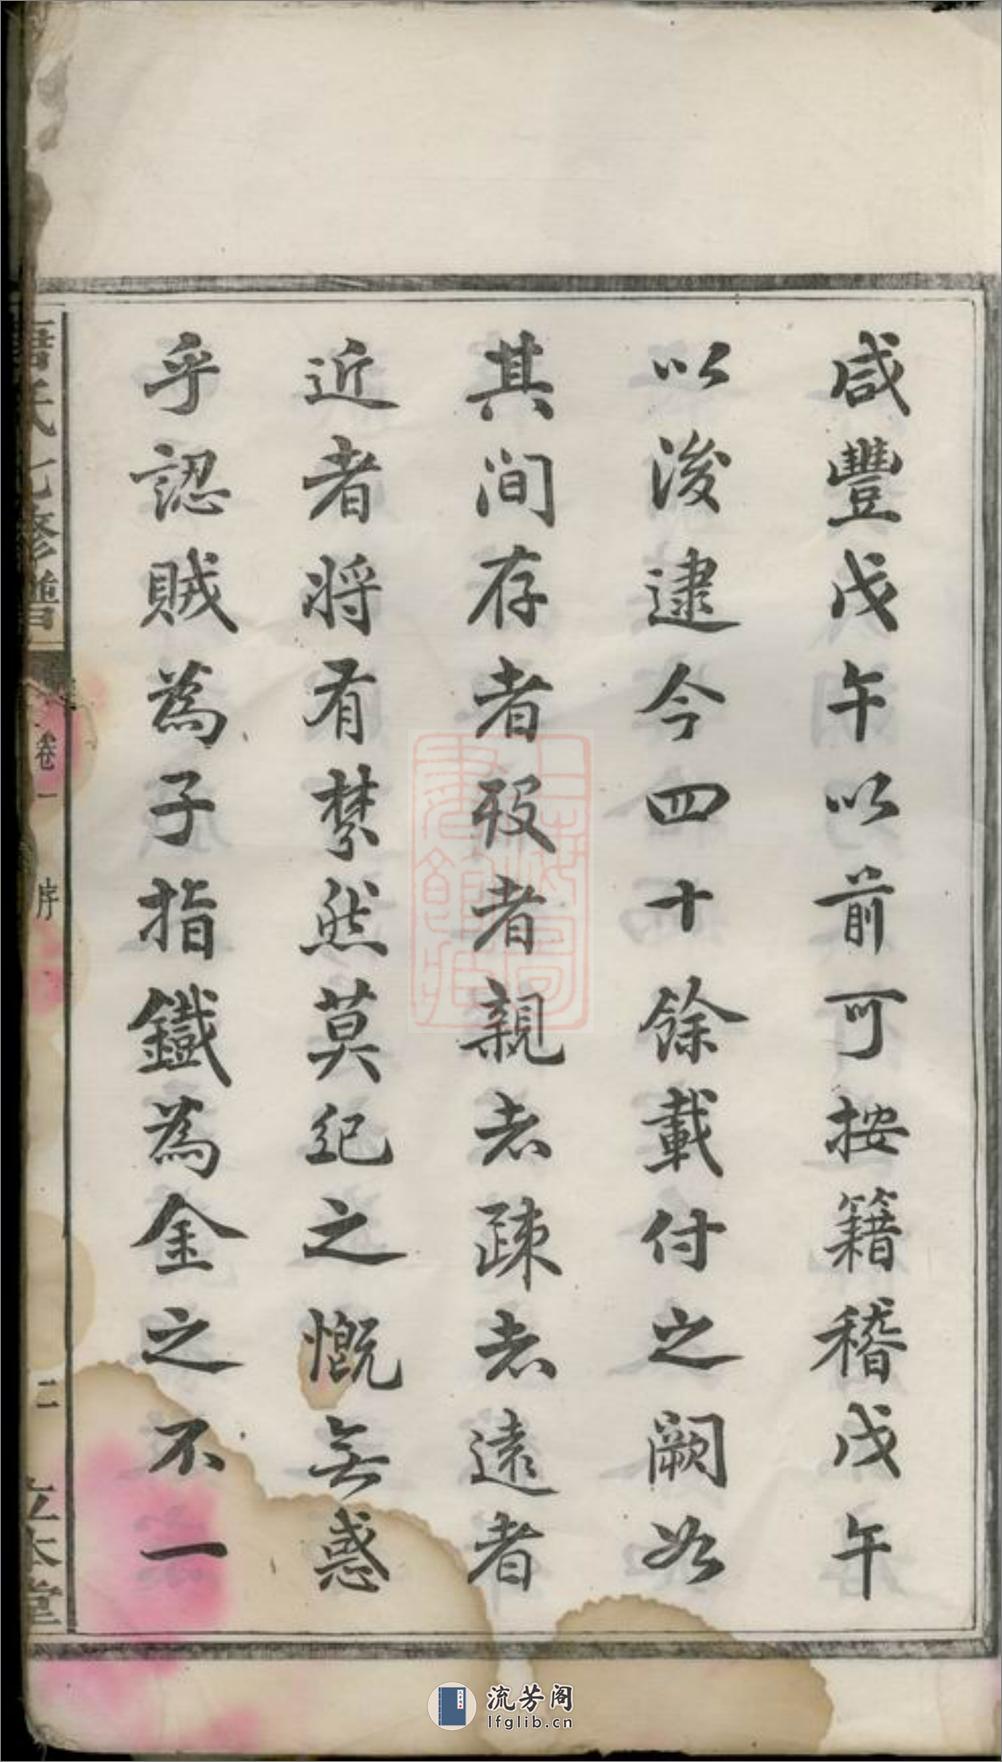 咸豐戊午以前可按籍稽戊午
以後逮今四十餘載付之闕如
其间存者殁者親者疎者遠者
近者将有棼然莫纪之慨無惑
乎認賊為子指鐵為金之不一
氏七修譜
卷一
序
二
立本堂
流芳阁
lfglib.cn